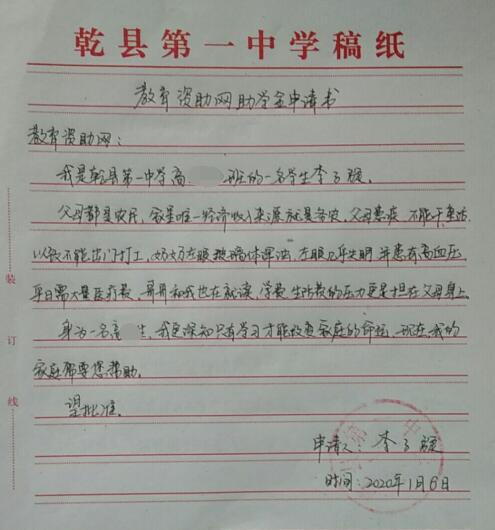 乾县第一中学稿纸
教育资助网助学金申请书
教育资助网：
我是乾县第一中学高 班的一名学生李子璇。
父母都是农民，家里唯一经济收入来源就是务农，父母患疾不能干重活
以致不能出门打工，奶奶左眼玻璃体浑浊，左眼几乎失明并患有高血压，
平日需大量医疗费，哥哥和我也在就读，学费生活费的压力更是担在父母身上。
身为一名高 生，我更深知只有学习才能改变家庭的命运，现在，我的
家庭需要您帮助。
望批准。
申请人：李子璇
时间：2020年1月6日
装
订
线